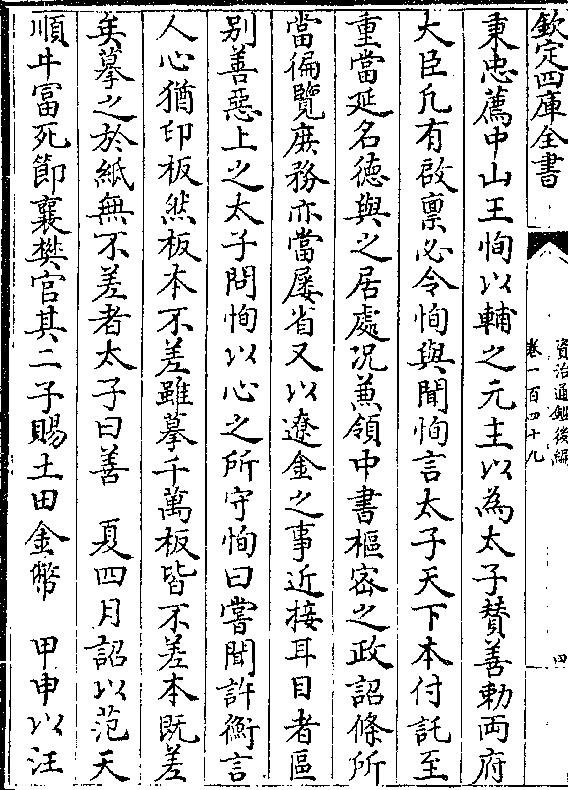 欽定四庫全書
資治通鑑後編
卷一百四十九
四
秉忠薦中山王恂以輔之元主以為太子賛善勅両府
大臣凡有啟禀必令恂與聞恂言太子天下本付託至
重當延名德與之居處况兼領中書樞宻之政詔條所
當徧覽庶務亦當屢省又以遼金之事近接耳目者區
别善惡上之太子問恂以心之所守恂曰嘗聞許衡言
人心猶印板然板本不差雖摹千萬板皆不差本既差
矣摹之於紙無不差者太子曰善　夏四月詔以范天
順牛富死節襄樊官其二子賜土田金幣　甲申以汪